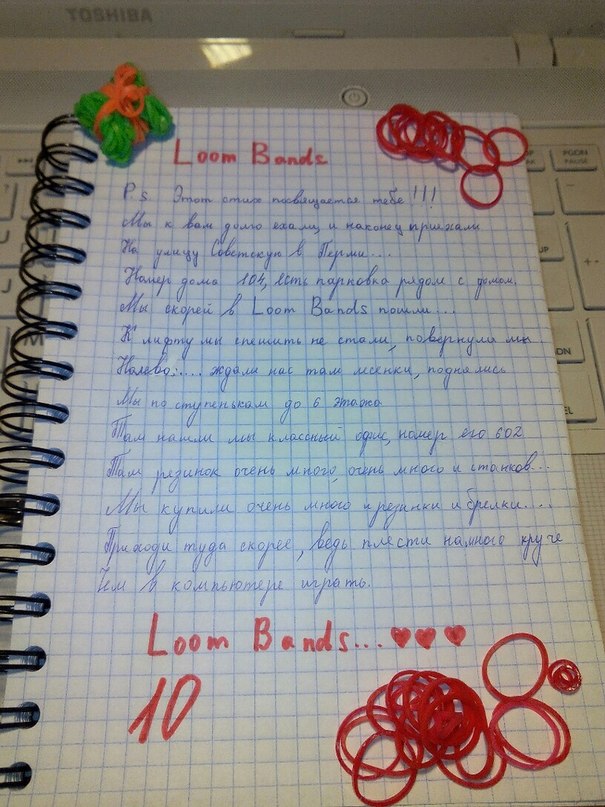 TOSHIBA
Loom Bands
P.s. Этот стих посвящается тебе!!!
Мы к вам долго ехали, и наконец приехали
На улицу Советскую в Перми...
Номер дома 104, есть парковка рядом с домом.
Мы скорей в Loom Bands пошли...
К лифту мы спешить не стали, повернули мы
Налево:.... ждали нас там лесенки, поднялись
Мы по ступенькам до 6 этажа
Там нашли мы классный офис, номер его 602
Там резинок очень много, очень много и станков...
Мы купили очень много и резинки и брелки....
Приходи туда скорее, ведь плести намного круче
Чем в компьютере играть.
Loom Bands...
10
PGDN
PAUSE
UP
DN
EL
M